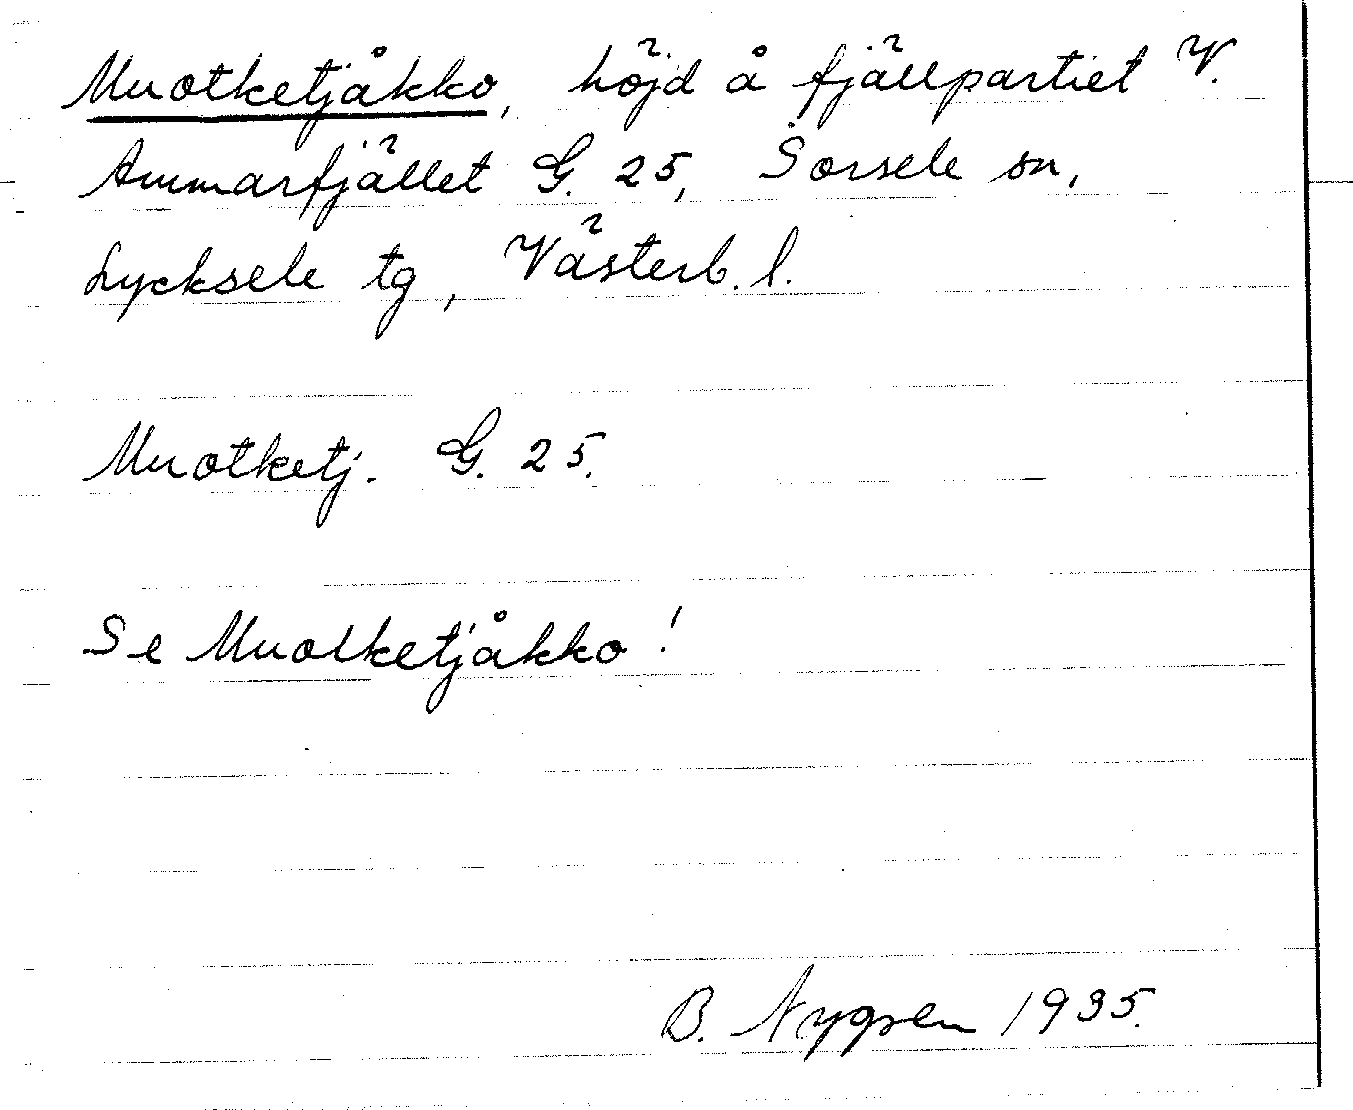 Muotketjåkko, höjd å fjällpartiet V.
Ammarfjället G. 25, Sorsele sn,
Lycksele tg, Västerb. l.
Muotketj. G. 25.
Se Muolketjåkko!
B. Nygren 1935.